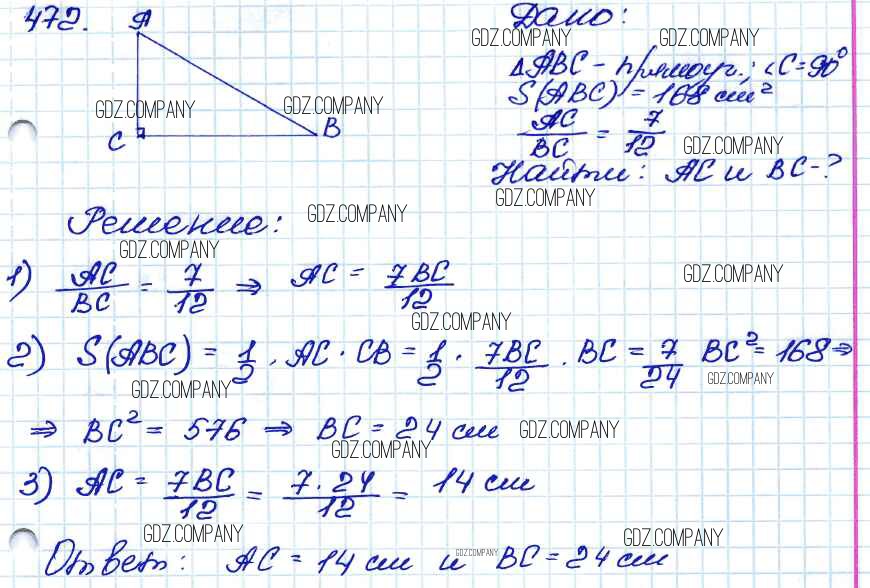 472.
A
C
B
Дано:
GDZ.COMPANY GDZ.COMPANY
ΔABC - прямоуг.; ∠C = 90°
S(ABC) = 168 см²
GDZ.COMPANY GDZ.COMPANY
AC/BC = 7/12
GDZ.COMPANY
Найти: AC и BC - ?
GDZ.COMPANY
Решение:
GDZ.COMPANY
GDZ.COMPANY
1) AC/BC = 7/12 ⇒ AC = 7BC/12
GDZ.COMPANY
GDZ.COMPANY
2) S(ABC) = 1/2 · AC · CB = 1/2 · 7BC/12 · BC = 7/24 BC² = 168 ⇒
GDZ.COMPANY GDZ.COMPANY
⇒ BC² = 576 ⇒ BC = 24 см
GDZ.COMPANY
GDZ.COMPANY
3) AC = 7BC/12 = 7·24/12 = 14 см
GDZ.COMPANY GDZ.COMPANY
Ответ: AC = 14 см и BC = 24 см
GDZ.COMPANY